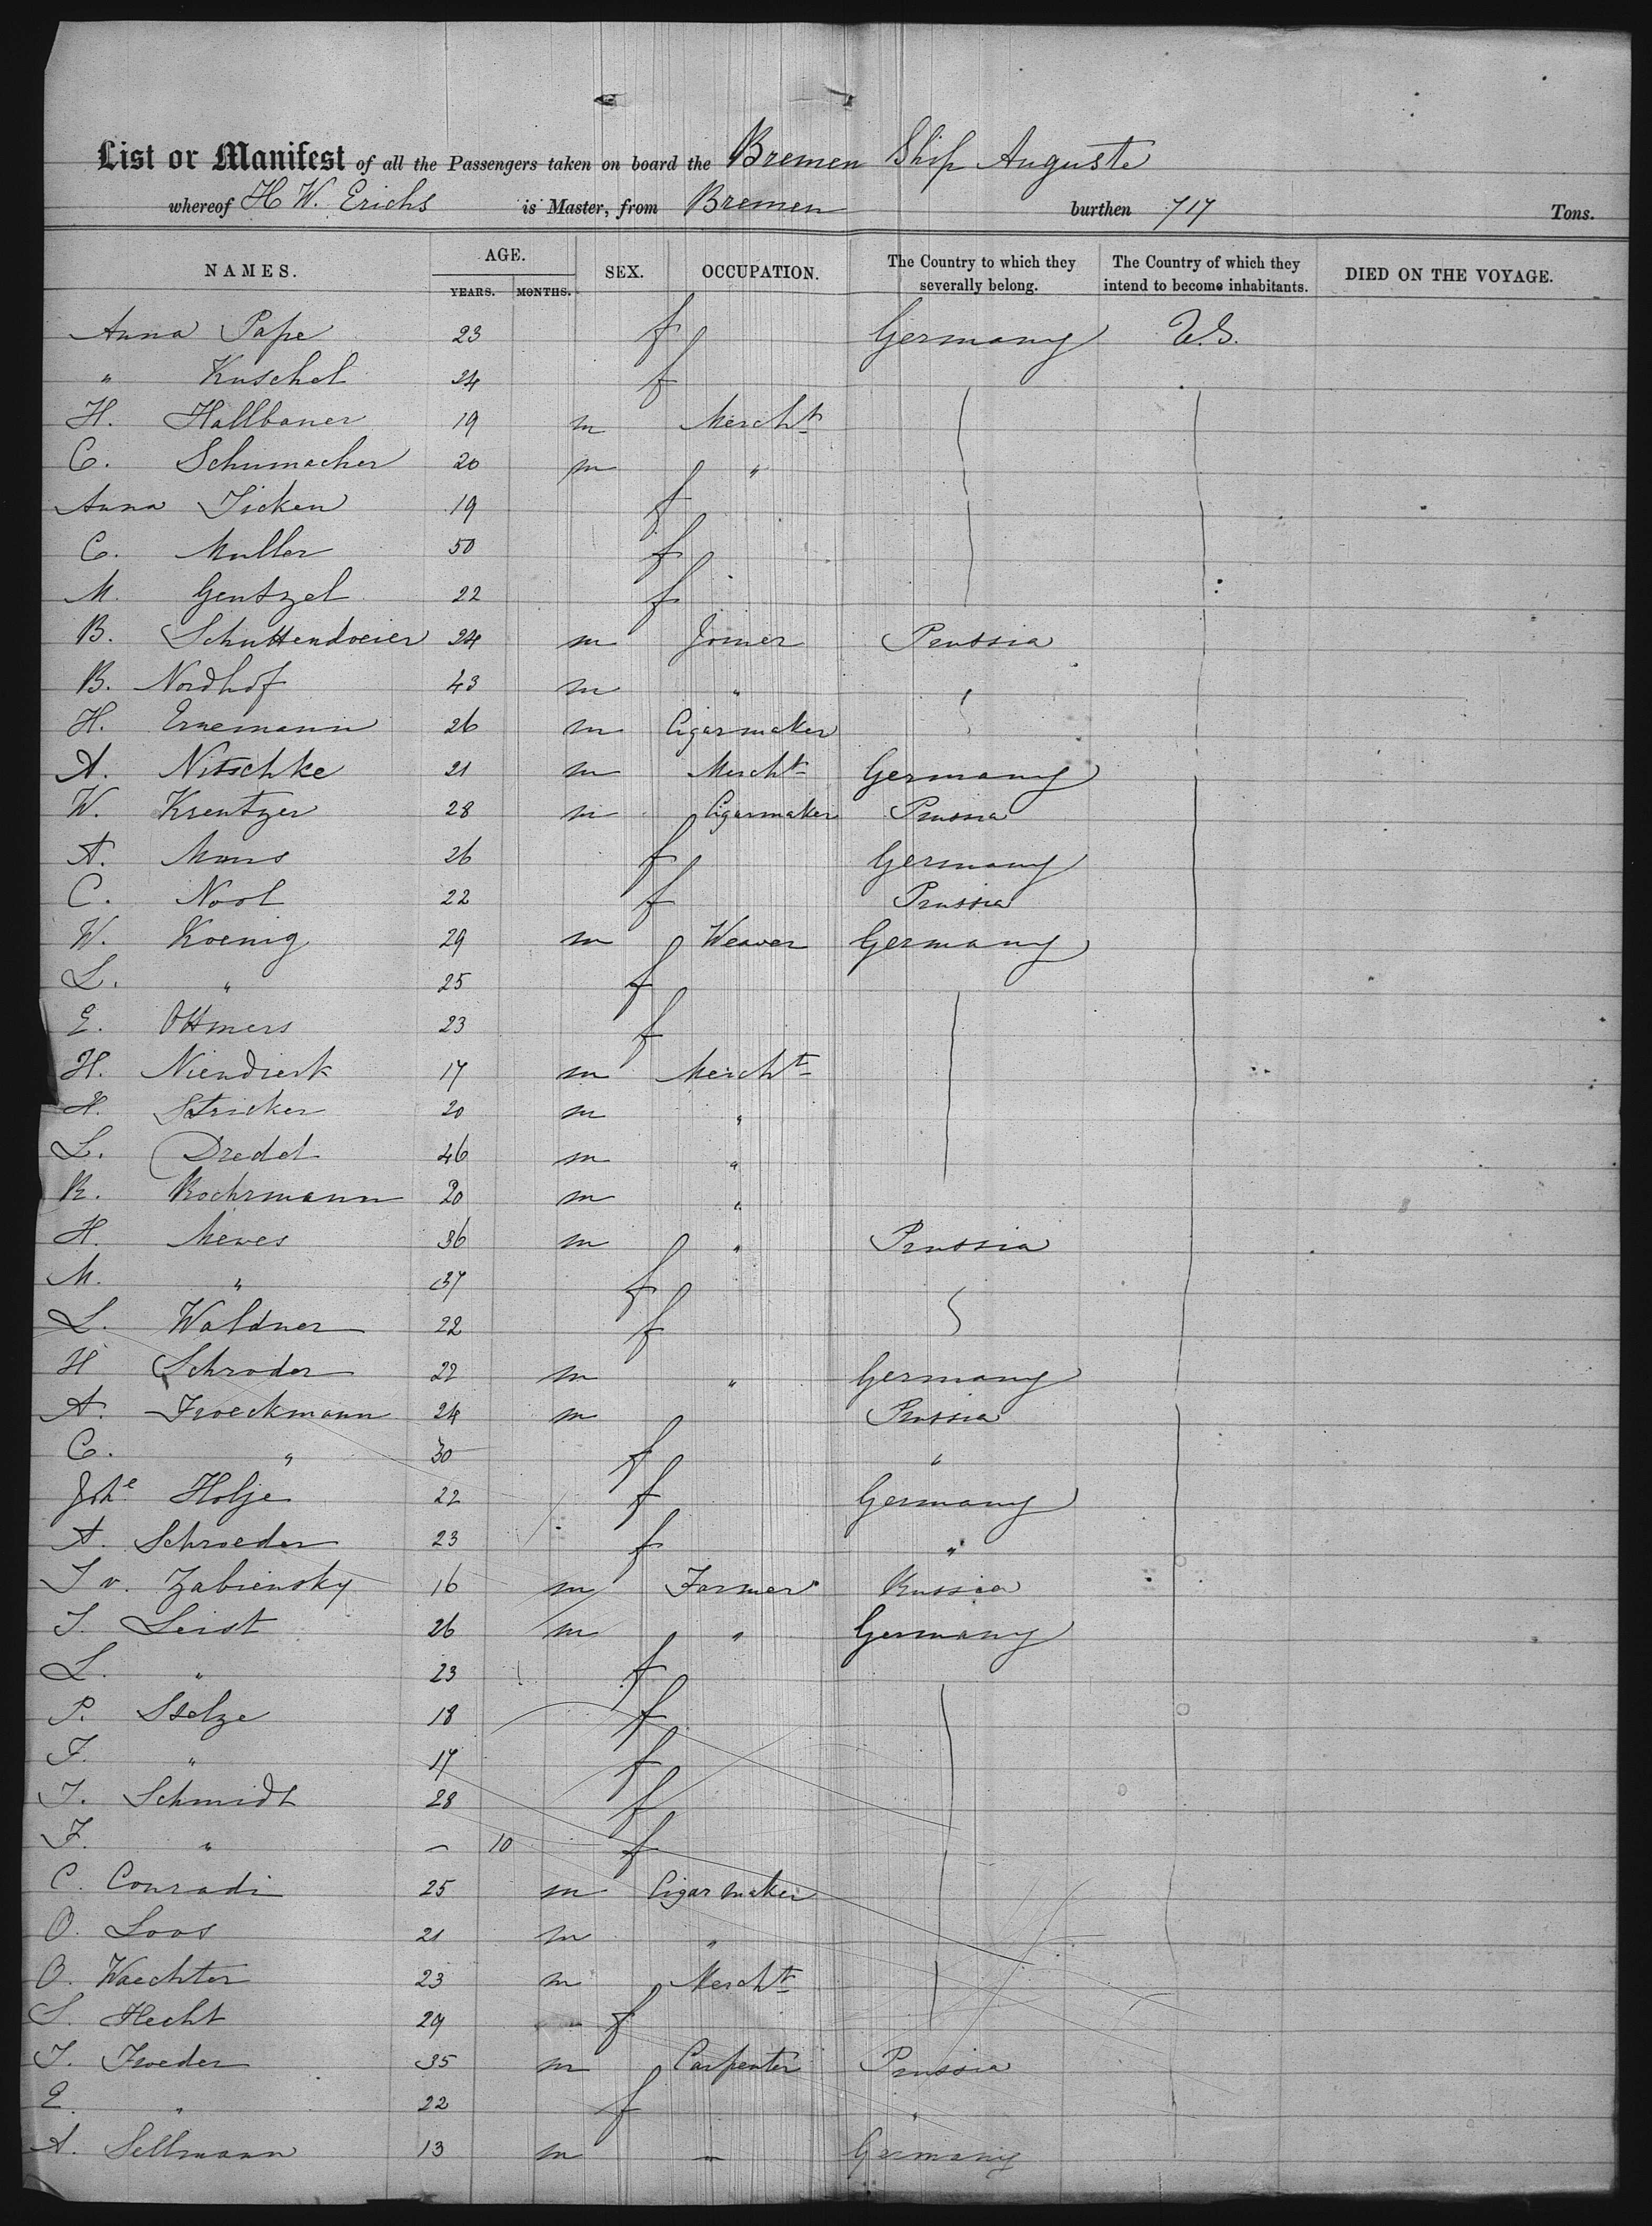 List or Manifest of all the Passengers taken on board the Bremen Ship Auguste
whereof H W. Erichs is Master, from Bremen burthen 717 Tons.
NAMES. AGE. SEX. OCCUPATION. The Country to which they severally belong. The Country of which they intend to become inhabitants. DIED ON THE VOYAGE.
YEARS. MONTHS.
Anna Pape 23 f Germany U.S.
" Kuschel 24 f
H. Hallbauer 19 m Mercht
C. Schumacher 20 m "
Anna Ticken 19 f
C. Muller 50 f
M. Gentzel 22 f
B. Schuttendreier 24 m Joiner Prussia
B. Nordhof 43 m " "
H. Ernemann 26 m Cigarmaker
A. Nitschke 21 m Mercht Germany
W. Krentzer 28 m Cigarmaker Prussia
A. Mons 26 f Germany
C. Nool 22 f Prussia
W. Koenig 29 m Weaver Germany
L. " 25 f
E. Ottmers 23 f
H. Niendierk 17 m Mercht
H. Stricker 20 m "
L. Dredel 46 m "
R. Rochrmann 20 m "
H. Mewes 36 m " Prussia
M. " 37 f
L. Waldner 22 f
H Schroder 22 m " Germany
A. Froeckmann 24 m Prussia
C. " 30 f "
Johe Holje 22 f Germany
A. Schroeder 23 f "
J v. Zabiensky 16 m Farmer Russia
J. Leist 26 m " Germany
L. " 23 f
P. Stelze 18 f
F. " 17 f
J. Schmidt 28 f
F. " – 10 f
C. Conradi 25 m Cigar maker
O. Loos 21 m "
O. Waechter 23 m Mercht
S. Hecht 29 f
J. Froeder 35 m Carpenter Prussia
E. " 22 f "
A. Sellmann 13 m – Germany